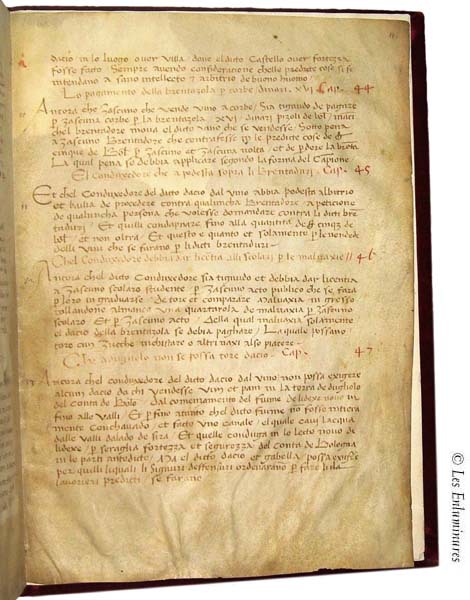 dacio in lo luogo over villa dove el dicto Castello over forteza
fosse fatto Sempre avendo consideratione chelle predicte cose si se
intendano a sano intellecto et arbitrio de buono huomo
Lo pagamento della brentarola p corbe dinari. XVI Cap. 44
Ancora che zascuno che vende vino a corbe / Sia tignudo de pagare
p zascuna corbe p la brentarola. XVI. dinari pizoli de bol / inaci
chel brentadore mova el dicto vino che se vendesse / Sotto pena
a zascuno Brentadore che contrafesse i le predicte cose de
cinque de Bol p zascuno et zascuna volta / et de p dere la brēta
La qual pena se debbia applicare segondo la forma del Capione
El conduxedore che a podesta sopra li Brentaduri. Cap. 45
Et chel Conduxedore del dicto dacio dal vino abbia podesta albitrio
et bailia de procedere contra qualuncha Brentadore / A petitione
de qualuncha persona che volesse domandare contra li dicti bren
taduri / Et quilli condapnare fino alla quantita de cinq; de
bol et non oltra / Et questo e quanto et solamente p le vendede
delle vini che se farano p li dicti brentaduri
Chel Conduxedore debbia dar licetia alli scolari p le malgaxie // 46
Ancora chel dicto Conduxedore sia tignudo et debbia dar licentia
a zascuno scolaro studente / p zascuno acto publico che se fara
p loro in graduarse / De tore et comparare Malvaxia in grosso
tollandone Almanco una quartarola de malvaxia p zascuno
scolaro Et p zascuno acto / Della qual malvaxia solamente
el dacio della brentarola se debia paghare / La quale possano
tore cum zucche inghistare o altri vaxi also piacere
Che a dugliolo non se possa tore dacio Cap. 47
Ancora chel conduxedore del dicto dacio dal vino non possa exigere
alcun dacio da chi vendesse vin et pan in la terra de dugliolo
del Conta de Bolo. Dal comenzamento del fiume de lidexe novo in
fino allo valli / Et p fino atanto chel dicto fiume no fosse intiera
mente Conchavado / et facto uno canale / el quale cavi lacqua
dalle valli dalado de sira / Et quelle conduga in lo lecto novo de
lidexe / p seraglia fortezza et segurezza del conta de Bologna
in le parti antedicte / Ma el dicto dacio et gabella possa exigere
per quilli liquali li Signuri deffensuri ordenarano p fare li
lavorieri predicti se farano
© Les Enluminures